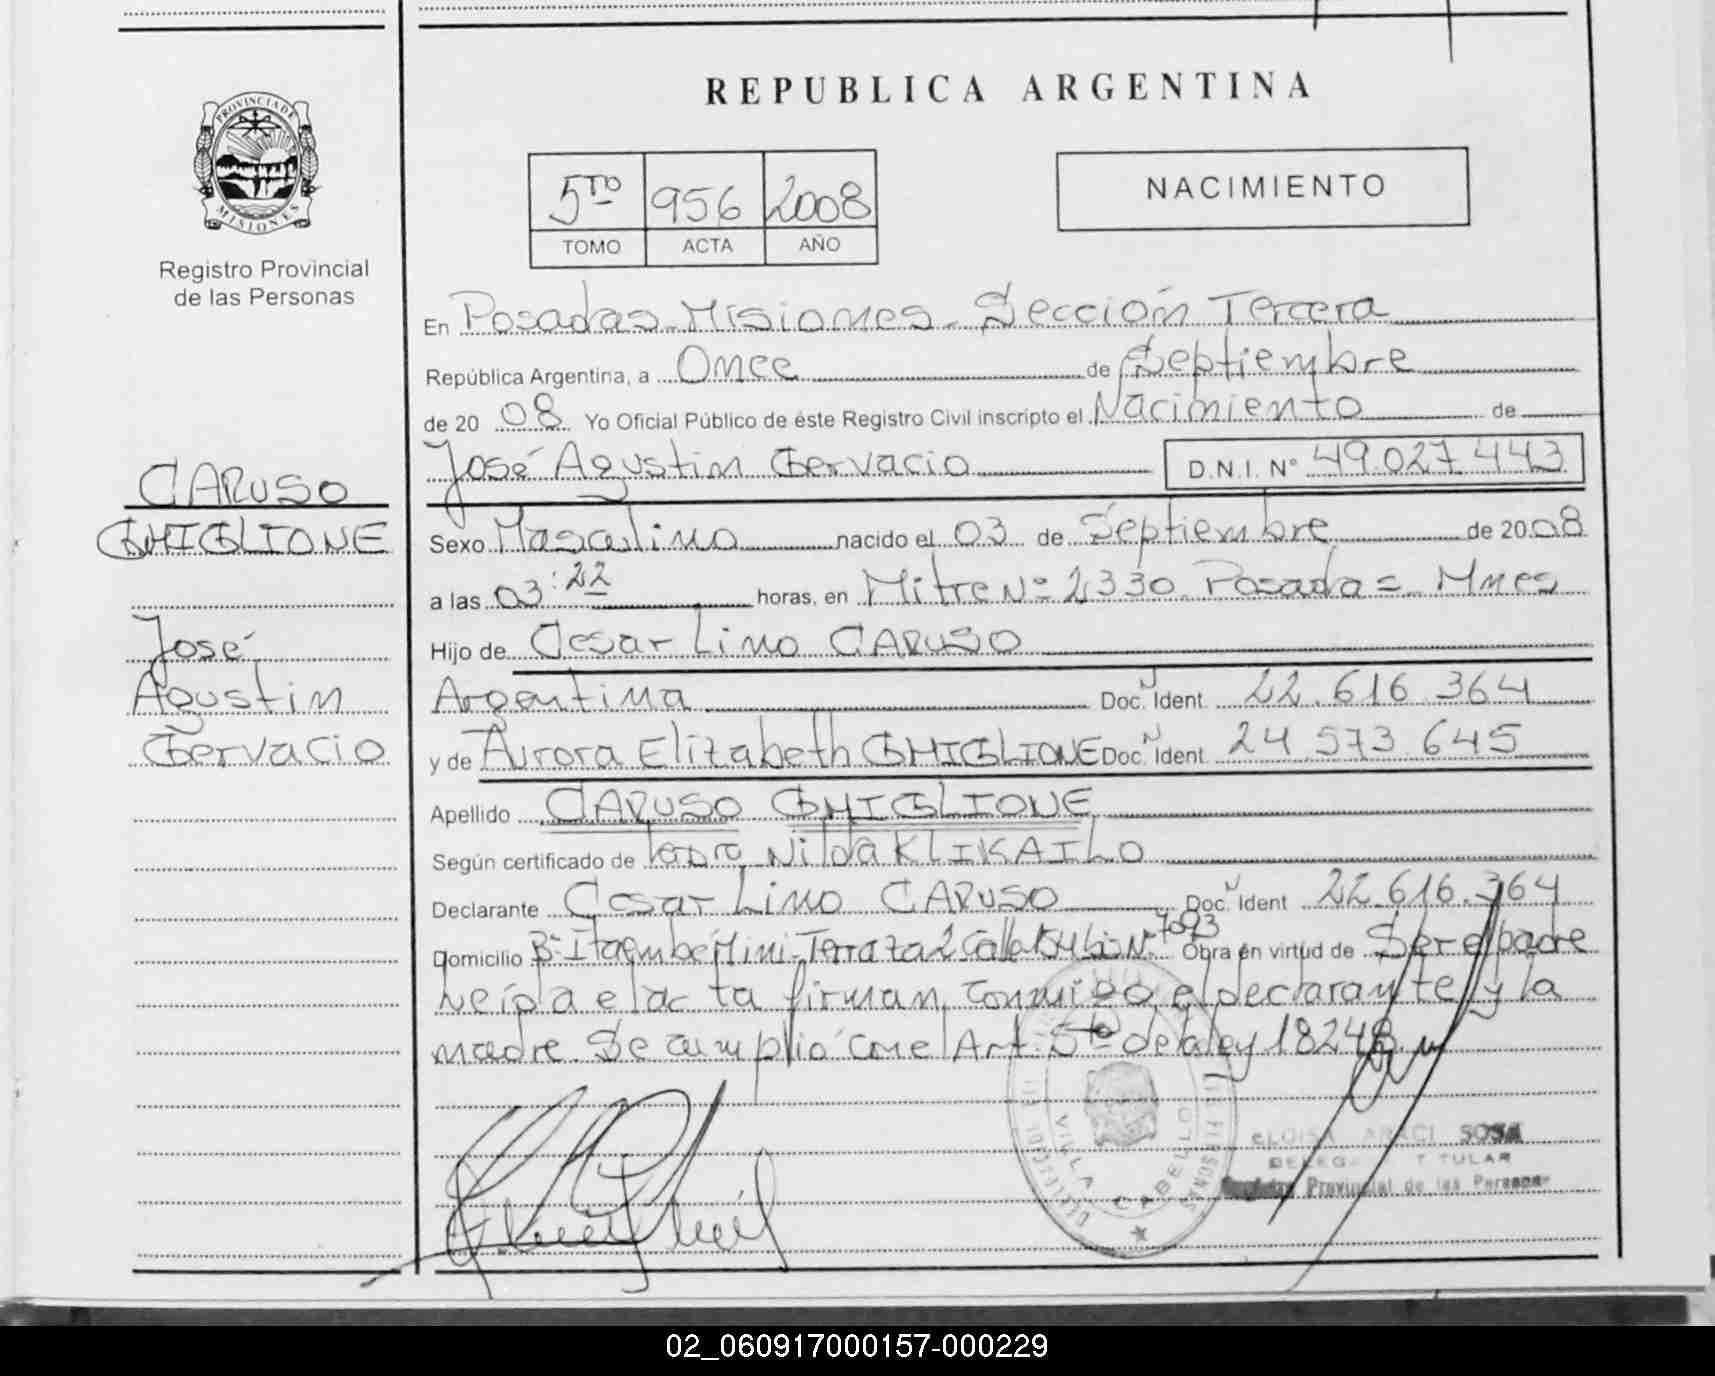 REPUBLICA ARGENTINA
PROVINCIA DE
MISIONES
Registro Provincial
de las Personas
5to 956 2008
TOMO ACTA AÑO
NACIMIENTO
En Posadas Misiones. Sección Tercera
República Argentina, a Once de Septiembre
de 2008 Yo Oficial Público de éste Registro Civil inscripto el Nacimiento de
José Agustin Gervacio D.N.I. N° 49.027.443
CARUSO
GHIGLIONE
José
Agustin
Gervacio
Sexo Masculino nacido el 03 de Septiembre de 2008
a las 03:22 horas, en Mitre Nº 2330 Posadas Mnes
Hijo de Cesar Lino CARUSO
Argentina Doc. Ident 22.616.364
y de Aurora Elizabeth GHIGLIONE Doc. Ident 24.573.645
Apellido CARUSO GHIGLIONE
Según certificado de Nilda KLIKAILO
Declarante Cesar Lino CARUSO Doc. Ident 22.616.364
Domicilio Bº Itaembé Mini-Terraza 2 Calle Nº 7093 Obra en virtud de Ser el padre
Leída el acta firman conmigo el declarante y la
madre. Se cumplió con el Art. 5to de la ley 18248
VILLA CABELLO
ELOISA ARACI SOSA
DELEGADA TITULAR
Registro Provincial de las Personas
02_060917000157-000229